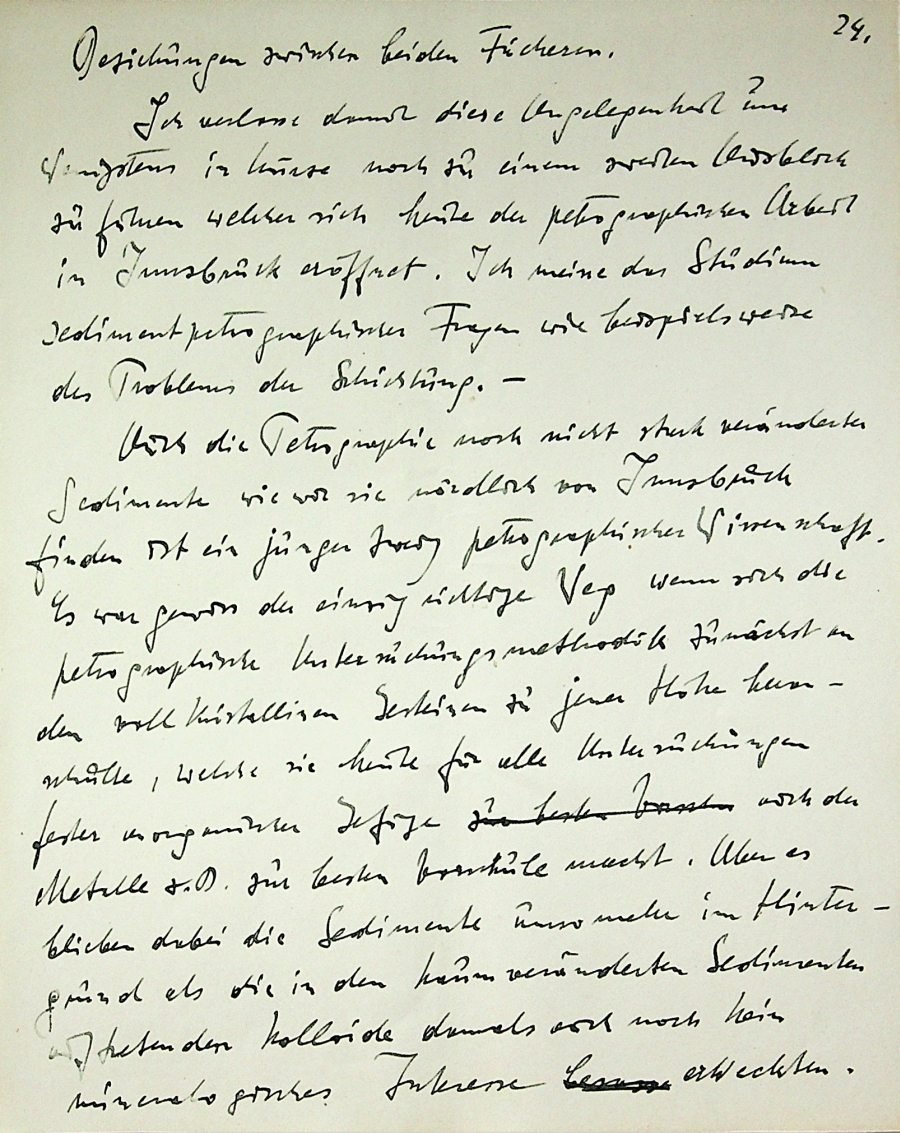 24.
Beziehungen zwischen beiden Fächern.
Ich verlasse damit diese Angelegenheit um
wenigstens in Kürze noch zu einem zweiten Ausblick
zu führen welcher sich heute der petrographischen Arbeit
in Innsbruck eröffnet. Ich meine das Studium
sedimentpetrographischer Fragen wie beispielsweise
des Problems der Schichtung. —
Auch die Petrographie noch nicht stark veränderter
Sedimente wie wir sie nördlich von Innsbruck
finden ist ein junger Zweig petrographischer Wissenschaft.
Es war gewiss der einzig richtige Weg wenn sich die
petrographische Untersuchungsmethodik zunächst an
den voll kristallinen Gesteinen zu jener Höhe heran-
schulte, welche sie heute für alle Untersuchungen
fester anorganischer Gefüge zur besten auch der
Metalle z.B. zur besten Vorschule macht. Aber es
blieben dabei die Sedimente umso mehr im Hinter-
grund als die in den kaum veränderten Sedimenten
auftretenden Kolloide damals auch noch kein
mineralogisches Interesse erweckten.